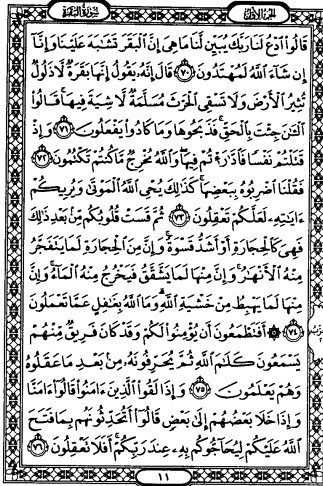 الجزء الأول
سورة البقرة
قَالُوا۟ ٱدْعُ لَنَا رَبَّكَ يُبَيِّن لَّنَا مَا هِىَ إِنَّ ٱلْبَقَرَ تَشَـٰبَهَ عَلَيْنَا وَإِنَّآ
إِن شَآءَ ٱللَّهُ لَمُهْتَدُونَ ۝٧٠ قَالَ إِنَّهُۥ يَقُولُ إِنَّهَا بَقَرَةٌ لَّا ذَلُولٌ
تُثِيرُ ٱلْأَرْضَ وَلَا تَسْقِى ٱلْحَرْثَ مُسَلَّمَةٌ لَّا شِيَةَ فِيهَا ۚ قَالُوا۟
ٱلْـَٔـٰنَ جِئْتَ بِٱلْحَقِّ ۚ فَذَبَحُوهَا وَمَا كَادُوا۟ يَفْعَلُونَ ۝٧١ وَإِذْ
قَتَلْتُمْ نَفْسًا فَٱدَّٰرَْٰٔتُمْ فِيهَا ۖ وَٱللَّهُ مُخْرِجٌ مَّا كُنتُمْ تَكْتُمُونَ ۝٧٢
فَقُلْنَا ٱضْرِبُوهُ بِبَعْضِهَا ۚ كَذَٰلِكَ يُحْىِ ٱللَّهُ ٱلْمَوْتَىٰ وَيُرِيكُمْ
ءَايَـٰتِهِۦ لَعَلَّكُمْ تَعْقِلُونَ ۝٧٣ ثُمَّ قَسَتْ قُلُوبُكُم مِّنۢ بَعْدِ ذَٰلِكَ
فَهِىَ كَٱلْحِجَارَةِ أَوْ أَشَدُّ قَسْوَةً ۚ وَإِنَّ مِنَ ٱلْحِجَارَةِ لَمَا يَتَفَجَّرُ
مِنْهُ ٱلْأَنْهَـٰرُ ۚ وَإِنَّ مِنْهَا لَمَا يَشَّقَّقُ فَيَخْرُجُ مِنْهُ ٱلْمَآءُ ۚ وَإِنَّ
مِنْهَا لَمَا يَهْبِطُ مِنْ خَشْيَةِ ٱللَّهِ ۗ وَمَا ٱللَّهُ بِغَـٰفِلٍ عَمَّا تَعْمَلُونَ
۝٧٤ ۞ أَفَتَطْمَعُونَ أَن يُؤْمِنُوا۟ لَكُمْ وَقَدْ كَانَ فَرِيقٌ مِّنْهُمْ
يَسْمَعُونَ كَلَـٰمَ ٱللَّهِ ثُمَّ يُحَرِّفُونَهُۥ مِنۢ بَعْدِ مَا عَقَلُوهُ
وَهُمْ يَعْلَمُونَ ۝٧٥ وَإِذَا لَقُوا۟ ٱلَّذِينَ ءَامَنُوا۟ قَالُوٓا۟ ءَامَنَّا
وَإِذَا خَلَا بَعْضُهُمْ إِلَىٰ بَعْضٍ قَالُوٓا۟ أَتُحَدِّثُونَهُم بِمَا فَتَحَ
ٱللَّهُ عَلَيْكُمْ لِيُحَآجُّوكُم بِهِۦ عِندَ رَبِّكُمْ ۚ أَفَلَا تَعْقِلُونَ ۝٧٦
١١